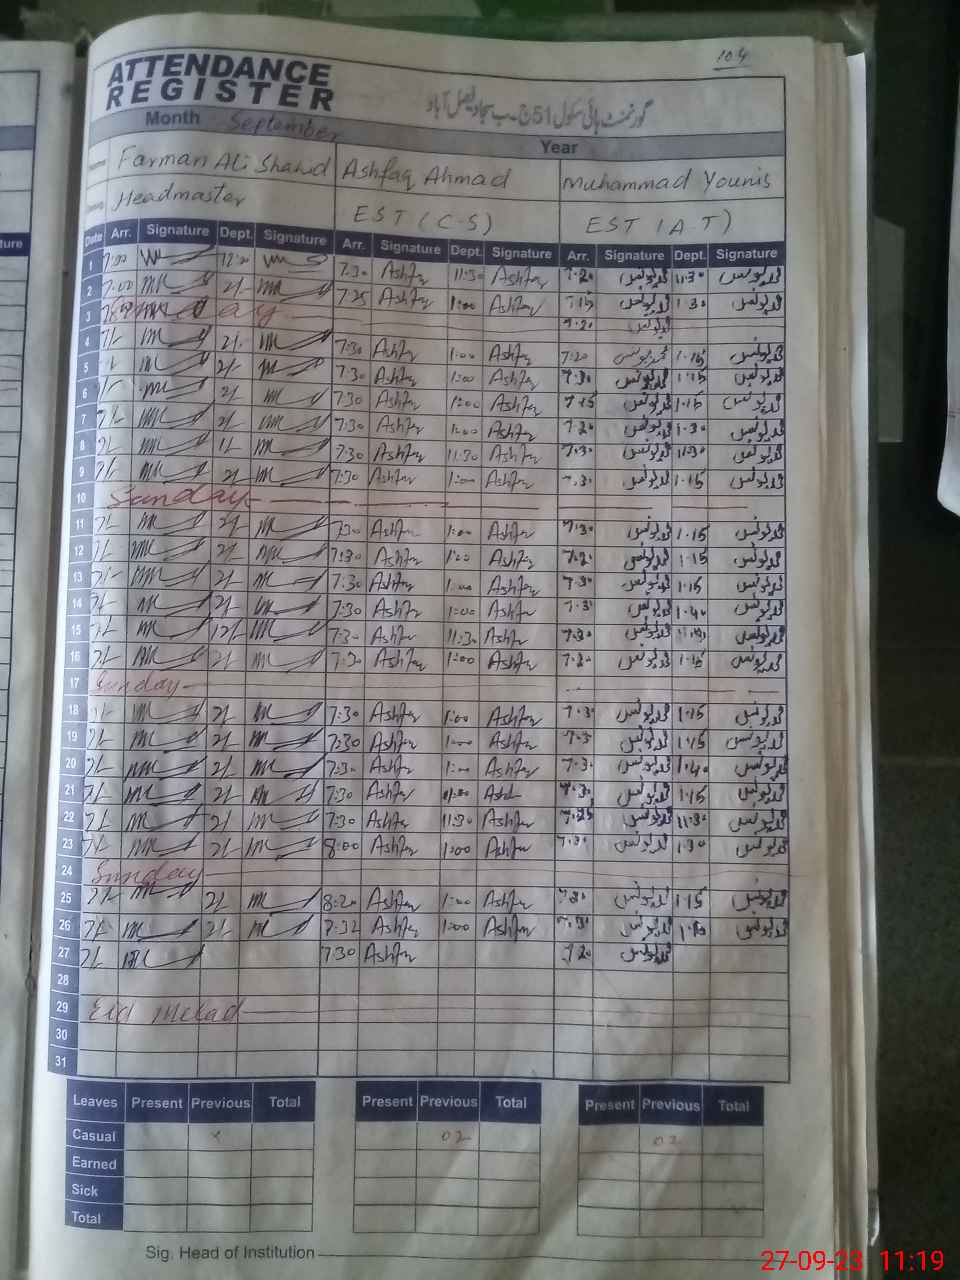 104
ATTENDANCE
REGISTER
گورنمنٹ ہائی سکول 51 ج۔ب سجاد فیصل آباد
Month September Year
Farman Ali Shahid Ashfaq Ahmad Muhammad Younis
Headmaster EST (C-S) EST (A.T)
Date Arr. Signature Dept. Signature Arr. Signature Dept. Signature Arr. Signature Dept. Signature
1 7:00 12:00 7:30 Ashfaq 11:30 Ashfaq 7:20 محمد یونس 11:30 محمد یونس
2 7:00 2/- 7:25 Ashfaq 1:00 Ashfaq 7:15 محمد یونس 1:30 محمد یونس
3 Sunday 7:20
4 7/- 2/- 7:30 Ashfaq 1:00 Ashfaq 7:20 محمد یونس 1:15 محمد یونس
5 7/- 2/- 7:30 Ashfaq 1:00 Ashfaq 7:30 محمد یونس 1:15 محمد یونس
6 7/- 2/- 7:30 Ashfaq 1:00 Ashfaq 7:15 محمد یونس 1:15 محمد یونس
7 7/- 2/- 7:30 Ashfaq 1:00 Ashfaq 7:20 محمد یونس 1:30 محمد یونس
8 7/- 1/- 7:30 Ashfaq 11:30 Ashfaq 7:30 محمد یونس 11:30 محمد یونس
9 7/- 2/- 7:30 Ashfaq 1:00 Ashfaq 7:30 محمد یونس 1:15 محمد یونس
10 Sunday
11 7/- 2/- 7:30 Ashfaq 1:00 Ashfaq 7:30 محمد یونس 1:15 محمد یونس
12 7/- 2/- 7:30 Ashfaq 1:00 Ashfaq 7:20 محمد یونس 1:15 محمد یونس
13 7/- 2/- 7:30 Ashfaq 1:00 Ashfaq 7:30 محمد یونس 1:15 محمد یونس
14 7/- 2/- 7:30 Ashfaq 1:00 Ashfaq 7:30 محمد یونس 1:40 محمد یونس
15 7/- 12/- 7:30 Ashfaq 11:30 Ashfaq 7:30 محمد یونس محمد یونس
16 7/- 2/- 7:30 Ashfaq 1:00 Ashfaq 7:20 محمد یونس 1:15 محمد یونس
17 Sunday
18 7/- 2/- 7:30 Ashfaq 1:00 Ashfaq 7:30 محمد یونس 1:15 محمد یونس
19 7/- 2/- 7:30 Ashfaq 1:00 Ashfaq 7:30 محمد یونس 1:15 محمد یونس
20 7/- 2/- 7:30 Ashfaq 1:00 Ashfaq 7:30 محمد یونس 1:40 محمد یونس
21 7/- 2/- 7:30 Ashfaq Ashfaq 7:30 محمد یونس 1:15 محمد یونس
22 7/- 2/- 7:30 Ashfaq 11:30 Ashfaq 7:25 محمد یونس 11:30 محمد یونس
23 7/- 2/- 8:00 Ashfaq 1:00 Ashfaq 7:30 محمد یونس 1:30 محمد یونس
24 Sunday
25 7/- 2/- 8:20 Ashfaq 1:00 Ashfaq محمد یونس 1:15 محمد یونس
26 7/- 2/- 7:32 Ashfaq 1:00 Ashfaq 7:30 محمد یونس محمد یونس
27 7/- 7:30 Ashfaq 7:20 محمد یونس
28
29 Eid Melad
30
31
Leaves Present Previous Total Present Previous Total Present Previous Total
Casual × 02 02
Earned
Sick
Total
Sig. Head of Institution
27-09-23 11:19